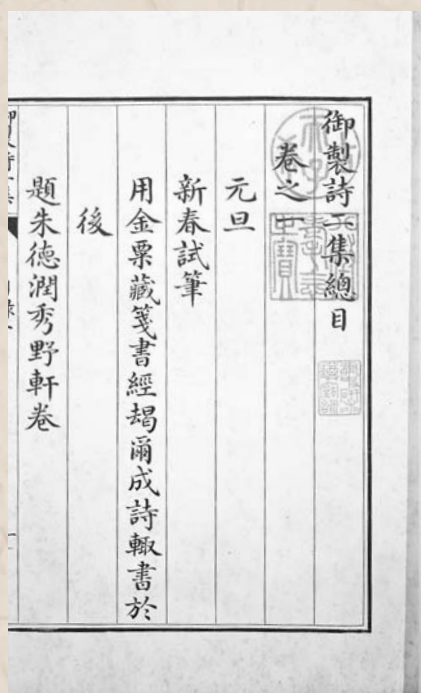 御製詩二集總目
卷之一
元旦
新春試筆
用金粟藏箋書經朅爾成詩輙書於
後
題朱德潤秀野軒卷